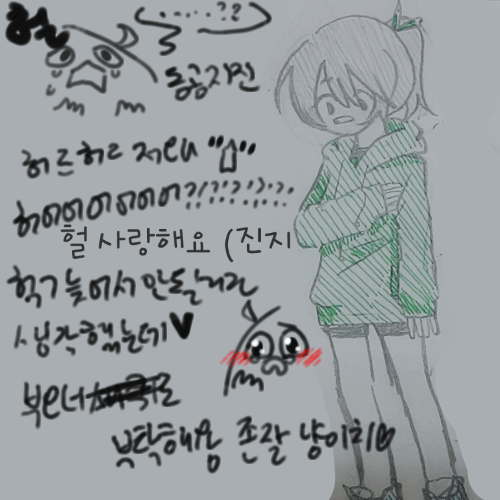 헐
.....??
동공지진
허르허르 저런
허어어어어어어?!?!?!?!?!
헐 사랑해요 (진지
헉ㄱ 늦어서 안될거라
생각했는데♥
부탁해용 존잘 냥이치♡